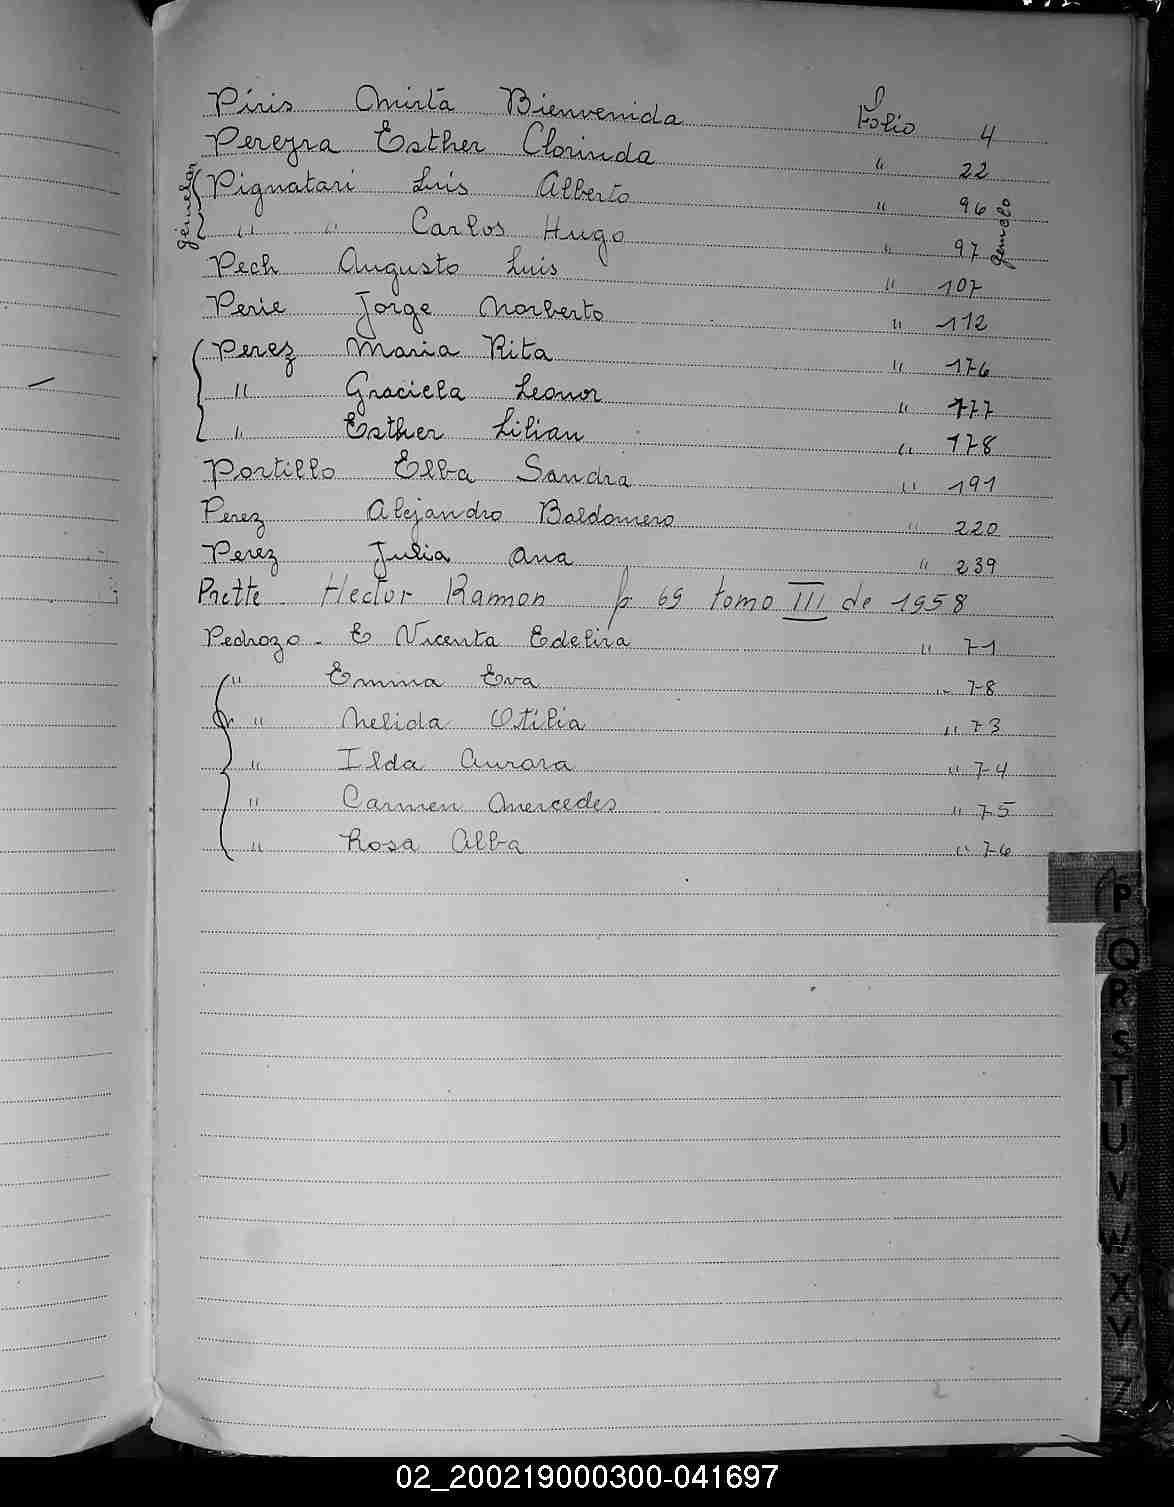 Piris Mirta Bienvenida Folio 4
Pereyra Esther Clorinda " 22
Pignatari Luis Alberto " 96
" " Carlos Hugo " 97
gemelo
Pech Augusto Luis " 107
Perie Jorge Norberto " 112
Perez Maria Rita " 176
" Graciela Leonor " 177
" Esther Lilian " 178
Portillo Elba Sandra " 191
Perez Alejandro Baldomero " 220
Perez Julia Ana " 239
Prette Hector Ramon f 69 tomo III de 1958
Pedrozo - E Vicenta Edelira " 71
" Emma Eva " 78
" Nelida Otilia " 73
" Ilda Aurora " 74
" Carmen Mercedes " 75
" Rosa Alba " 76
P
Q
R
S
T
U
V
W
X
Y
Z
02_200219000300-041697